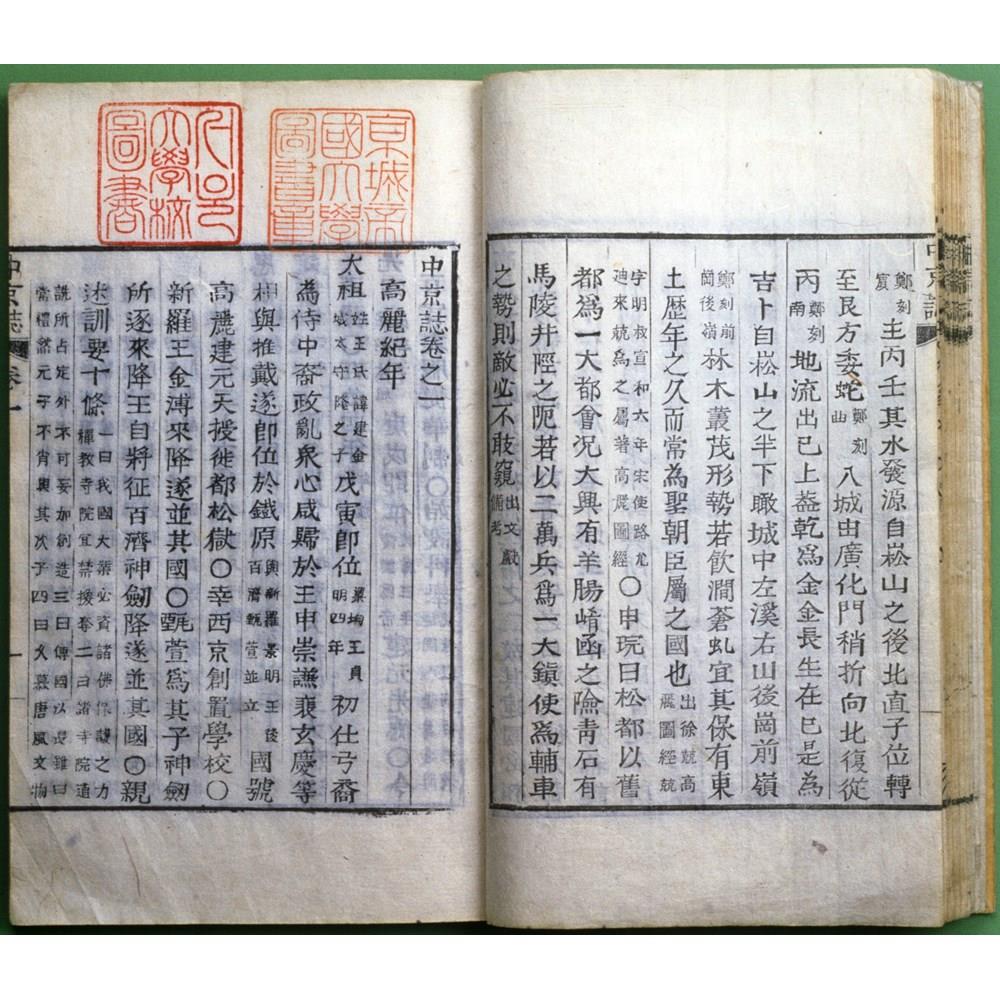 中京誌
鄭刻寘主丙壬其水發源自崧山之後北直子位轉
至艮方委蛇鄭刻曲八城由廣化門稍折向北復從
丙鄭刻南地流出已上盖乾爲金金長生在巳是為
吉卜自崧山之半下瞰城中左溪右山後崗前嶺
鄭刻前崗後嶺林木叢茂形勢若飲澗蒼虬宜其保有東
土歷年之久而常為聖朝臣屬之國也出徐兢高麗圖經兢
字明叔宣和六年宋使路允迪來兢爲之屬著高麗圖經〇申琓曰松都以舊
都爲一大都會况大興有羊腸崤函之險靑石有
馬陵井陘之阨若以二萬兵爲一大鎮使爲輔車
之勢則敵必不敢窺出文獻備考
京城帝國大學圖書章
서울大學校圖書
中京誌卷之一
高麗紀年
太祖姓王氏諱建金城太守隆之子戊寅卽位梁均王貞明四年初仕弓裔
為侍中裔政亂衆心咸歸於王申崇謙裴玄慶等
相與推戴遂卽位於鐵原與新羅景明王後百濟甄萱並立國號
高麗建元天授徙都松嶽〇幸西京創置學校〇
新羅王金溥來降遂並其國〇甄萱爲其子神劒
所逐來降王自將征百濟神劒降遂並其國〇親
述訓要十條一曰我國大業必資諸佛保護之力禪敎寺院宜禁援奪二曰諸寺院道
詵所占定外不可妄加創造三曰傳國以長雖曰常禮然元子不肖與其次子四曰文慕唐風文物
中京誌 卷一 一